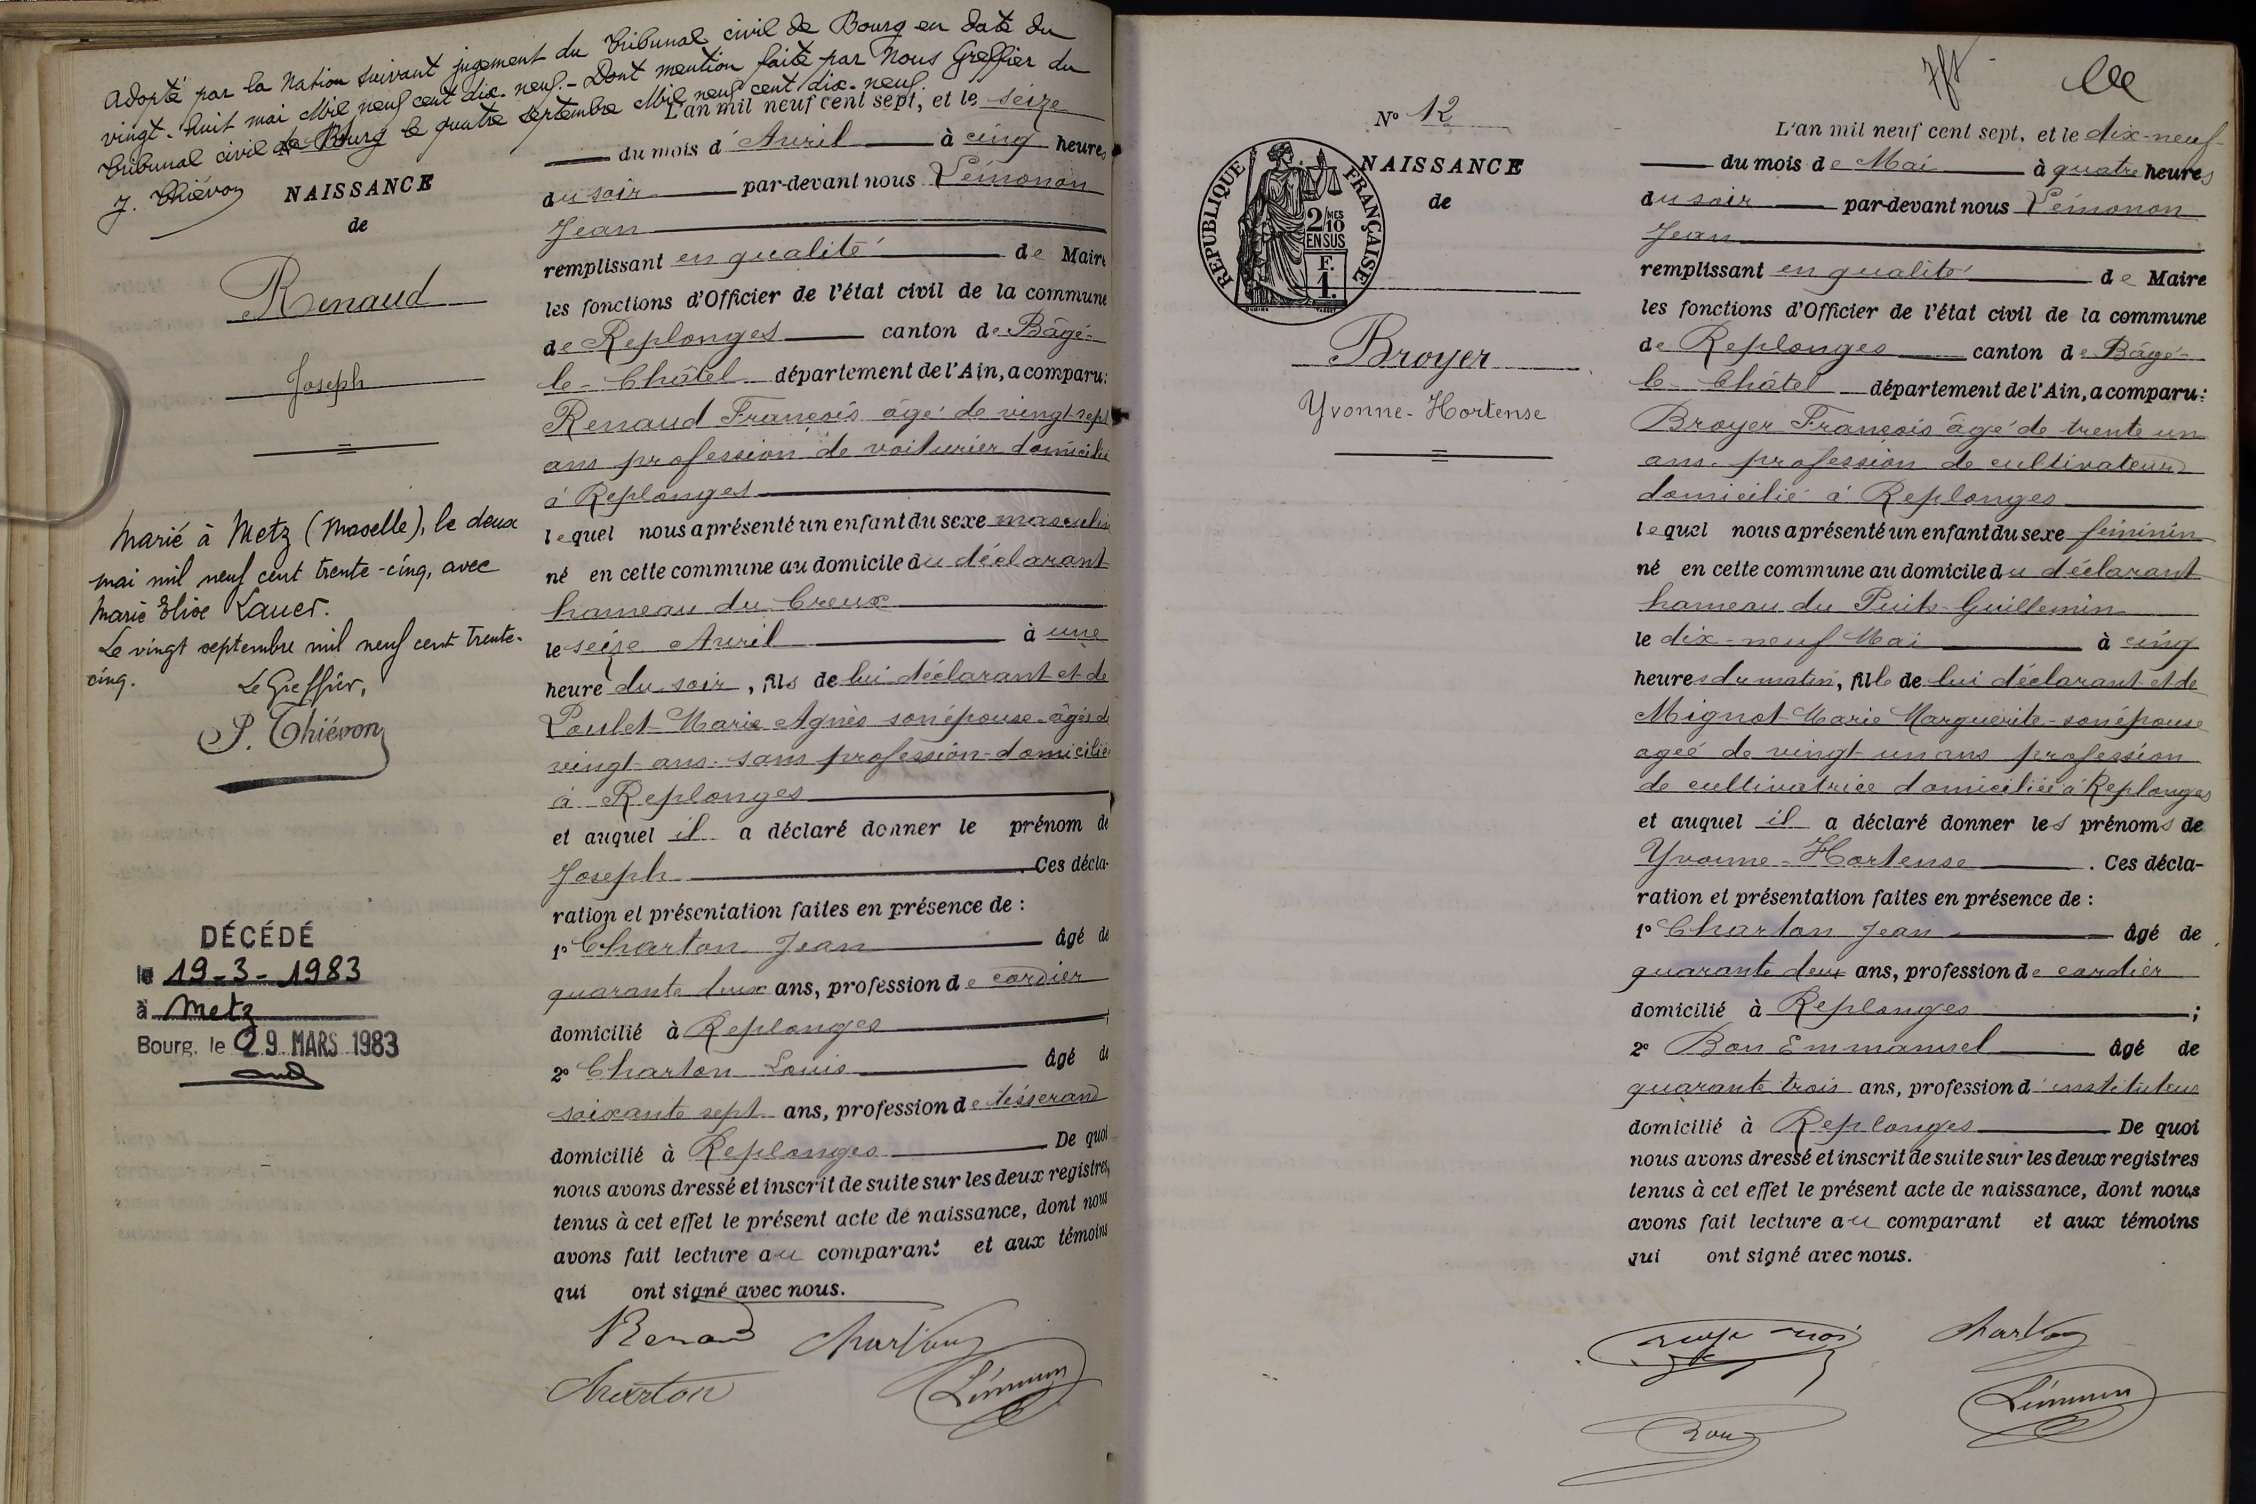 Adopté par la Nation suivant jugement du Tribunal civil de Bourg en date du
vingt-huit mai Mil neuf cent dix-neuf.- Dont mention faite par Nous Greffier du
Tribunal civil de Bourg le quatre septembre Mil neuf cent dix-neuf.
J. Thiévon
NAISSANCE
de
Renaud
Joseph
Marié à Metz (Moselle), le deux
mai mil neuf cent trente-cinq, avec
Marie Elise Lauer.
Le vingt septembre mil neuf cent trente-
cinq.
Le Greffier,
P. Thiévon
DÉCÉDÉ
le 19-3-1983
à Metz
Bourg, le 29 MARS 1983
L'an mil neuf cent sept, et le seize
du mois d'Avril à cinq heures
du soir par-devant nous Lémonon
Jean
remplissant en qualité de Maire
les fonctions d'Officier de l'état civil de la commune
de Replonges canton de Bâgé-
le-Châtel département de l'Ain, a comparu:
Renaud François âgé de vingt-sept
ans profession de voiturier domicilié
à Replonges
lequel nous a présenté un enfant du sexe masculin
né en cette commune au domicile du déclarant
hameau du Creux
le seize Avril à une
heure du soir, fils de lui déclarant et de
Poulet Marie Agnès son épouse âgée de
vingt ans sans profession domiciliée
à Replonges
et auquel il a déclaré donner le prénom de
Joseph. Ces décla-
ration et présentation faites en présence de :
1° Charton Jean âgé de
quarante deux ans, profession de cordier
domicilié à Replonges
2° Charton Louis âgé de
soixante sept ans, profession de tisserand
domicilié à Replonges De quoi
nous avons dressé et inscrit de suite sur les deux registres
tenus à cet effet le présent acte de naissance, dont nous
avons fait lecture au comparant et aux témoins
qui ont signé avec nous.
Renaud Charton
Charton Lémonon
N° 12
REPUBLIQUE FRANÇAISE
2/10MES
EN SUS
F.
1.
NAISSANCE
de
Broyer
Yvonne-Hortense
L'an mil neuf cent sept, et le dix-neuf
du mois de Mai à quatre heures
du soir par-devant nous Lémonon
Jean
remplissant en qualité de Maire
les fonctions d'Officier de l'état civil de la commune
de Replonges canton de Bâgé-
le-Châtel département de l'Ain, a comparu :
Broyer François âgé de trente un
ans profession de cultivateur
domicilié à Replonges
lequel nous a présenté un enfant du sexe féminin
né en cette commune au domicile du déclarant
hameau du Puits-Guillemin
le dix-neuf Mai à cinq
heures du matin, fille de lui déclarant et de
Mignot Marie Marguerite son épouse
agée de vingt un ans profession
de cultivatrice domiciliée à Replonges
et auquel il a déclaré donner les prénoms de
Yvonne-Hortense. Ces décla-
ration et présentation faites en présence de :
1° Charton Jean âgé de
quarante deux ans, profession de cordier
domicilié à Replonges ;
2° Bon Emmanuel âgé de
quarante trois ans, profession d'instituteur
domicilié à Replonges De quoi
nous avons dressé et inscrit de suite sur les deux registres
tenus à cet effet le présent acte de naissance, dont nous
avons fait lecture au comparant et aux témoins
qui ont signé avec nous.
Charton
Bon Lémonon